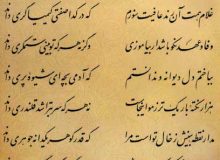 غلام همت آن رند عافیت سوزم که در گدا صفتی کیمیاگری داند
وفا و عهد نکو باشد ار بیاموزی وگرنه هر که تو بینی ستمگری داند
بباختم دل دیوانه و ندانستم که آدمی بچه‌ای شیوه پری داند
هزار نکته باریک‌تر ز مو اینجاست نه هر که سر بتراشد قلندری داند
مدار نقطه بینش ز خال تست مرا که قدر گوهر یکدانه جوهری داند